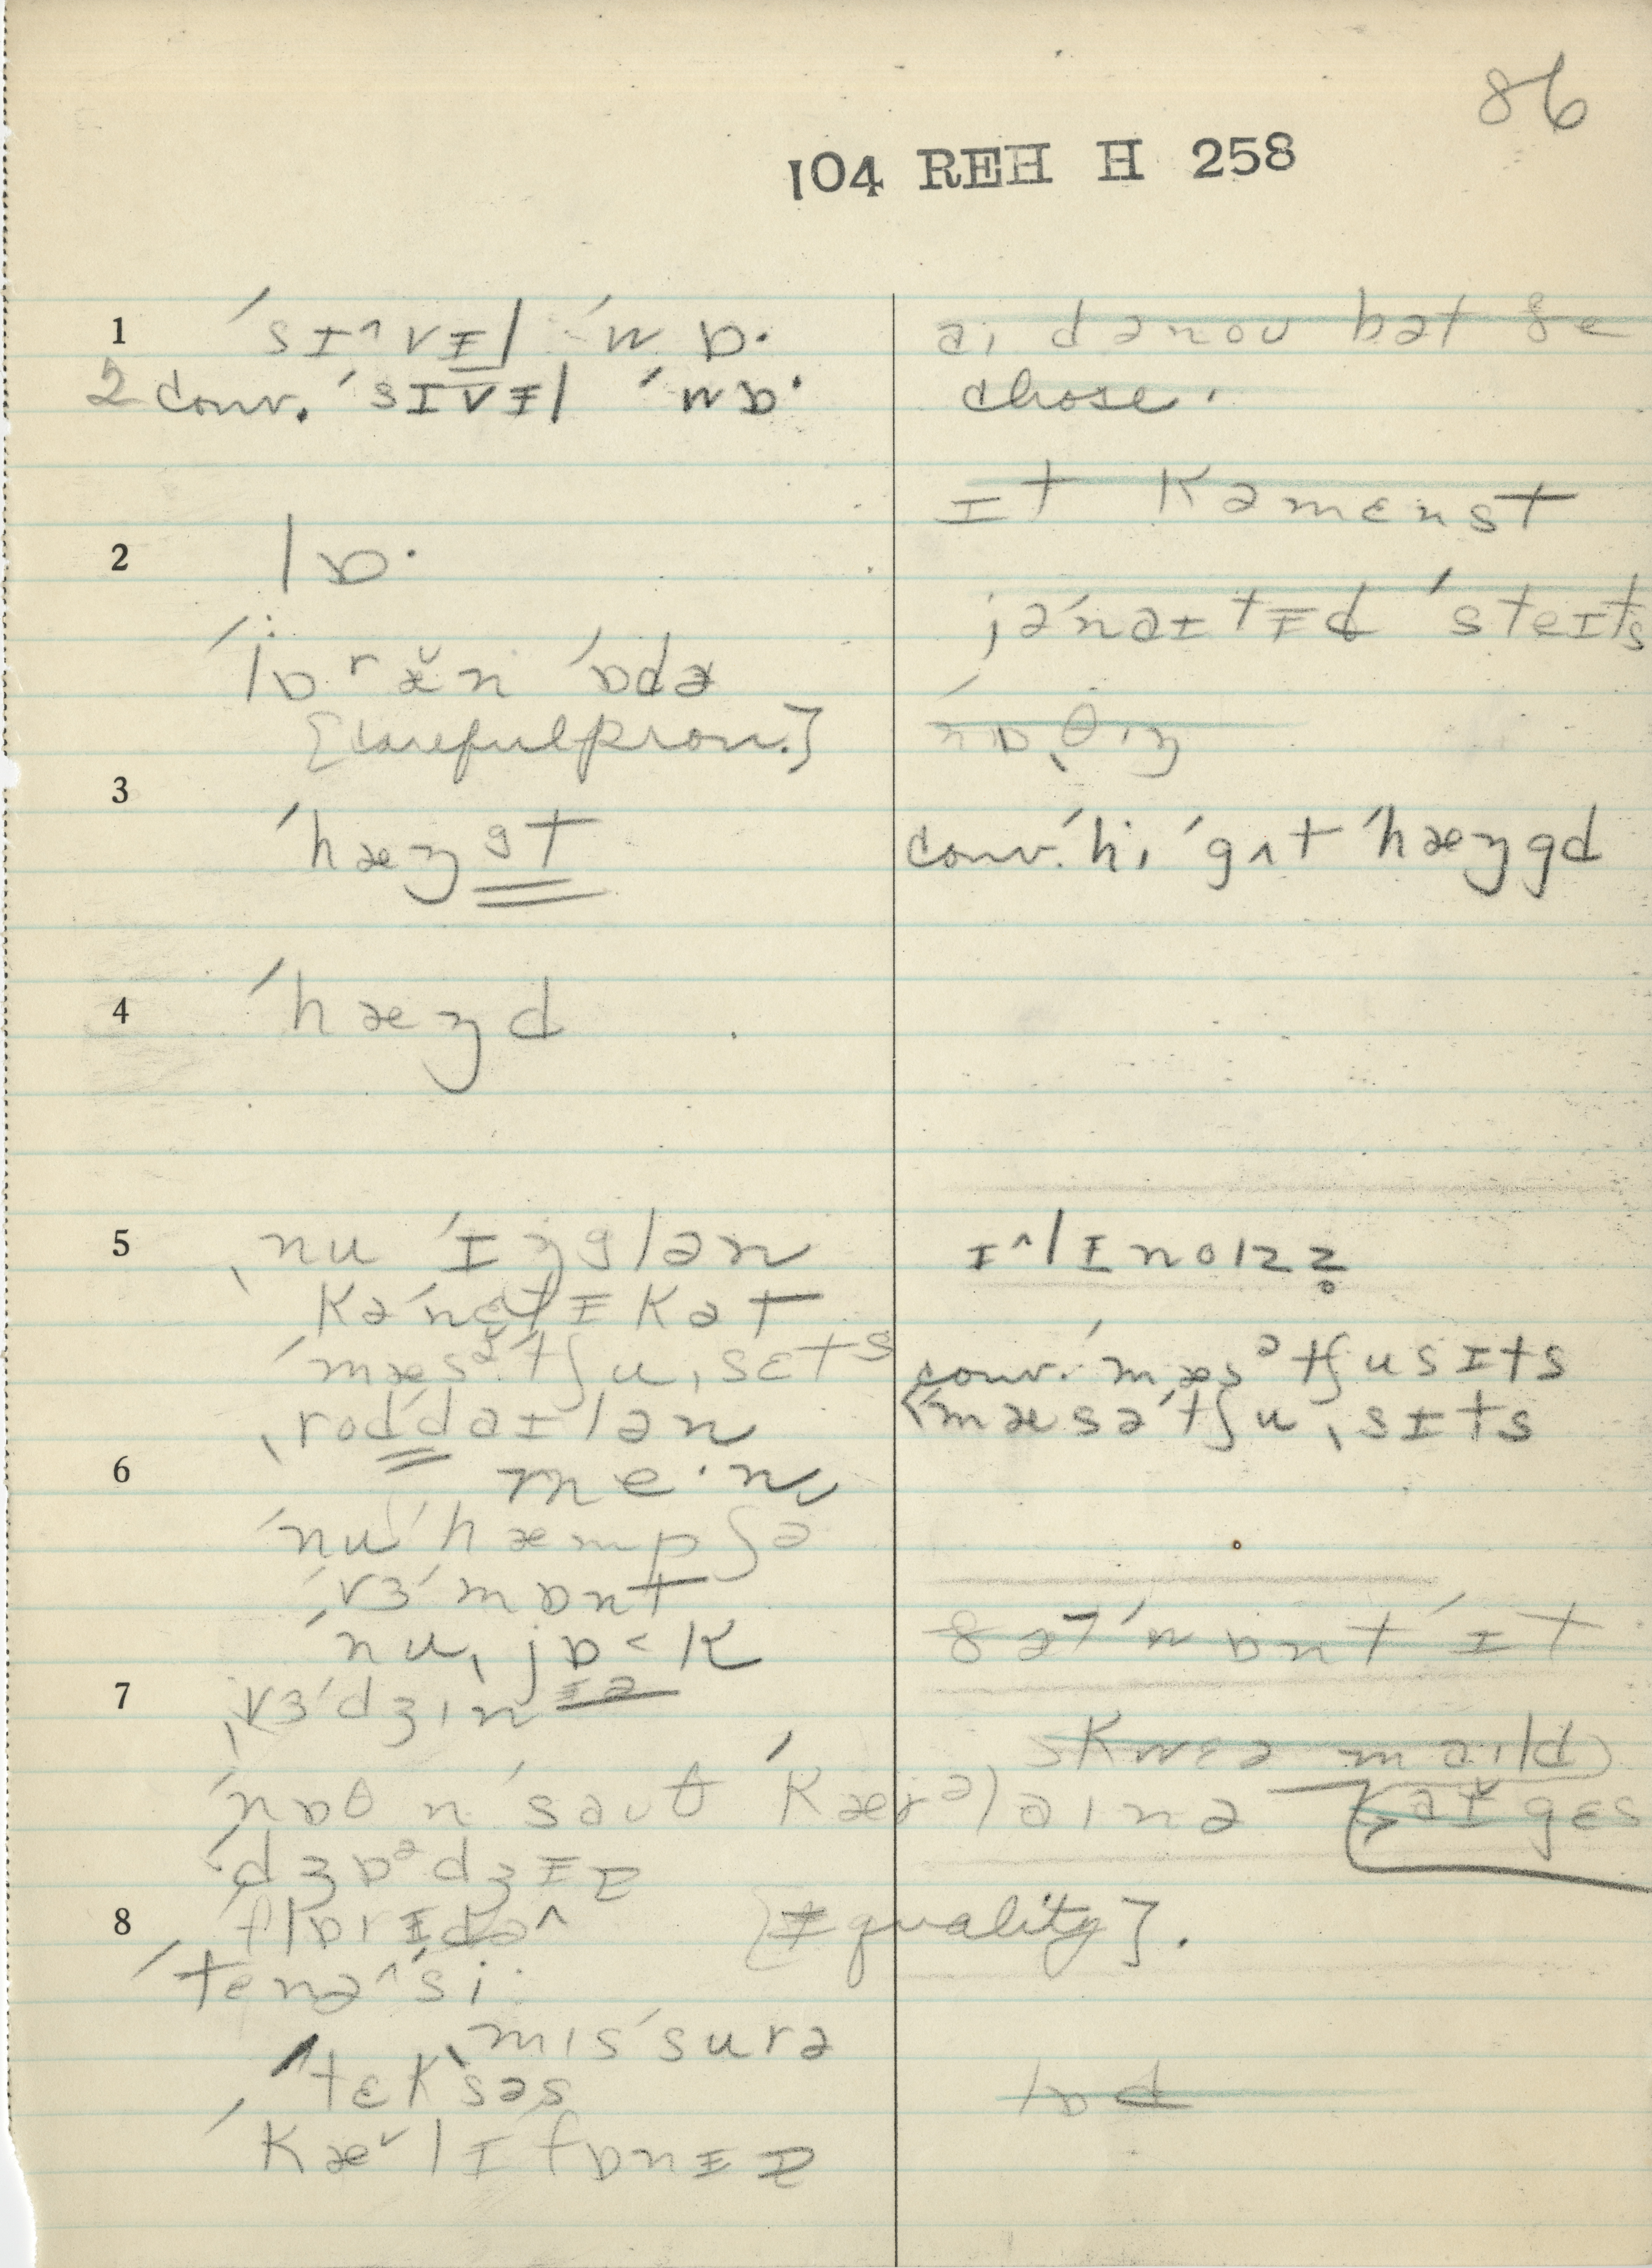 86
104 REH H 258
1 ˈsɪ^vɪ̵l ˈwɒ·
2 conv. ˈsɪvɪ̵l ˈwɒ·
2 lɒ·
ˈlɒ·r æ̆n ˈɒdə
[careful pron.]
3 ˈhæŋgt
4 ˈhæŋd
5 ˌnu ˈɪŋglən
kəˈnɛtɪ̵kət
ˈmæsəˈtʃuˌsɛts
ˌroddaɪlən
6 me·n
ˈnuˈhæmpʃə
ˈvɜˈmɒnt
ˈnuˌjɒ<k
7 ˌvɜˈdʒɪnɪ̵ə
ˈnɒθ n ˈsauθ ˈkærəlaɪnə
ˈdʒɒədʒɪ̵ə
8 flɒrɪ̵də^ [ɪ̵ quality].
ˈtenə^ˈsi·
ˌmɪsˈsurə
ˈtɛksəs
ˈkæ˅lɪfɒnɪ̵ə
aɪ dənou bət ðe
chose.
ɪt kəmɛnst
jəˈnaɪtɪ̵d ˈsteɪts
ˈnɒˌθɪŋ
conv. ˈhi ˈgʌt ˈhæŋgd
ɪ^lɪnoɪz
conv. ˈmæsətʃusɪts
ˈmæsəˈtʃuˌsɪts
ðət ˈwɒnt ˈɪt
skwɛə maɪld
gɛs
lɒd